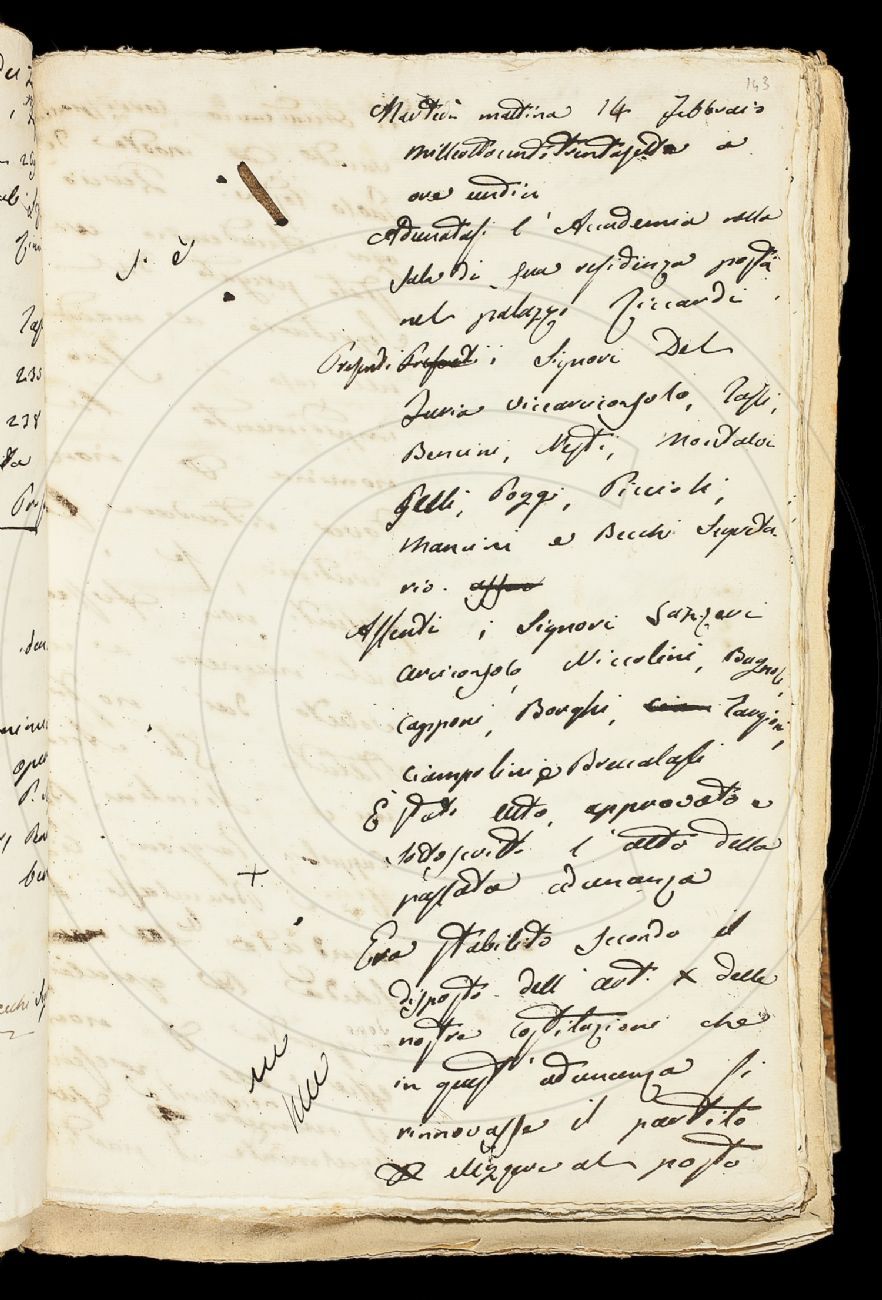 143
Martedì mattina 14 Febbraio
milleottocentotrentasette a
ore undici
Adunatasi l'Accademia nella
Sala di sua residenza posta
nel palazzo Riccardi
Presenti Presenti i Signori Del
Furia Viccarciconsolo, Tassi,
Bencini, Nesti, Montalvi
Gelli, Poggi, Piccioli,
Mancini e Becchi Segreta-
rio.
Assenti i Signori Sarzeri
arciconsolo, Niccolini, Bagnoli,
Capponi, Borghi, Targioni,
Ciampolini e Brucalassi
È stato letto, approvato e
sottoscritto l'atto della
passata adunanza
Era stabilito secondo il
disposto dell'art. X delle
nostre Costituzioni che
in quest'adunanza si
rinnovasse il partito
eleggere al posto